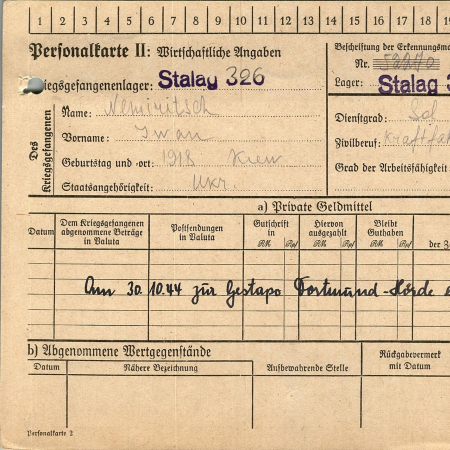 1 2 3 4 5 6 7 8 9 10 11 12 13 14 15 16 17 18 19
Personalkarte II: Wirtschaftliche Angaben
Beschriftung der Erkennungsma
Nr. 52270
Kriegsgefangenenlager: Stalag 326
Lager: Stalag 3
Des Kriegsgefangenen
Name: Nemiritsch
Vorname: Iwan
Geburtstag und -ort: 1918 Kiew
Staatsangehörigkeit: Ukr.
Dienstgrad: Sol
Zivilberuf: Kraftfah
Grad der Arbeitsfähigkeit
a) Private Geldmittel
Datum
Dem Kriegsgefangenen abgenommene Beträge in Valuta
Postsendungen in Valuta
Gutschrift in
RM Rpf
Hiervon ausgezahlt
RM Rpf
Bleibt Guthaben
RM Rpf
der
Am 30.10.44 zür Gestapo Dortmund-Hörde
b) Abgenommene Wertgegenstände
Datum
Nähere Bezeichnung
Aufbewahrende Stelle
Rückgabevermerk mit Datum
Personalkarte 2